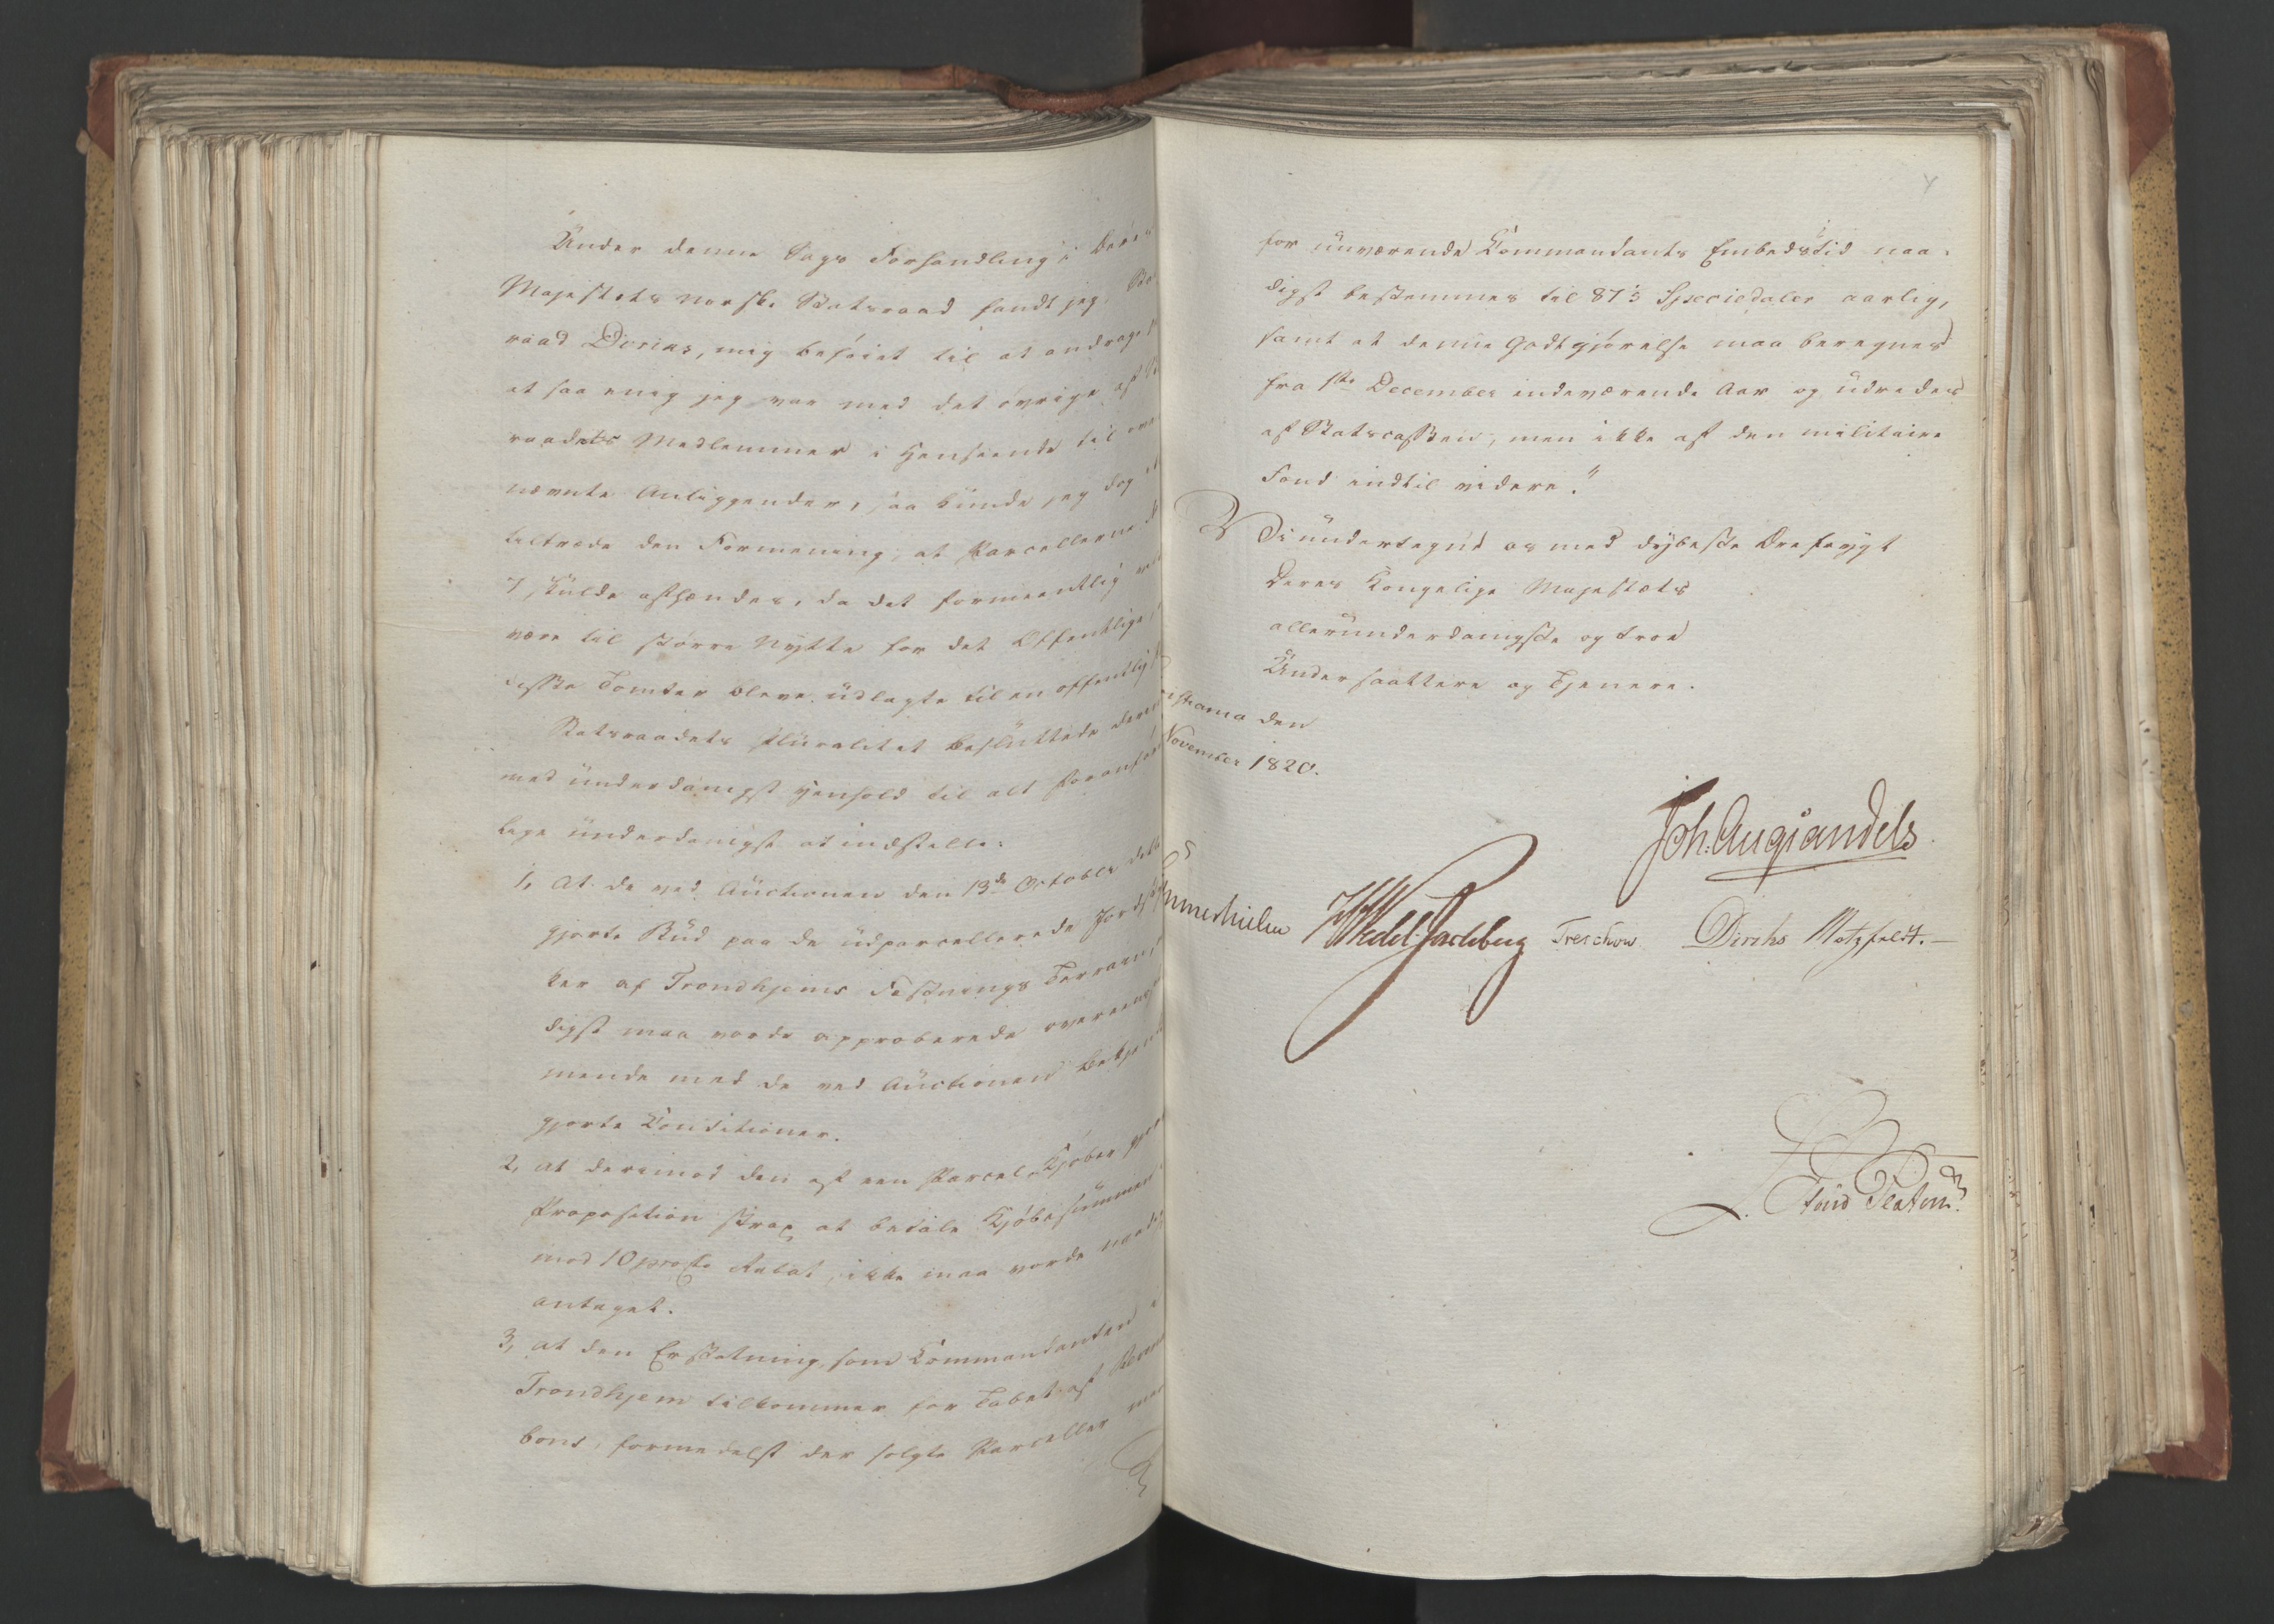 Under denne Sags Forhandling i Deres
Majestæts norske Statsraad fandt jeg, Stats
raad Diriks, mig beføiet til at andrage,
at saa enig jeg var med det øvrige af
raadets Medlemmer i Henseende til oven
nævnte Anliggender, saa kunde jeg dog
tiltræde den Formening, at Parcellerne
7, skulde afhændes, da det formeentlig
være til større Nytte for det Offentlige,
disse Tomter bleve udlagte til en offentlig
Statsraadets Pluralitet besluttede
med underdanigst Henhold til alt
lige underdanigst at indstille:
1, At de ved Auctionen den 13de October
gjorte Bud paa de udparcellerede
ker af Trondhjems Fæstnings Terrain,
digst maa vorde approberede overeens
mende med de ved Auctionen bekjendt
gjorte Conditioner.
2, at derimod den af een Parcel-Kjøber
Proposition strax at betale Kjøbesummen
mod 10 procto Rabat, ikke maa vorde
antaget.
3, at den Erstatning, som Commandanten i
Trondhjem tilkommer for Tabet af
bons, formedelst der solgte Parceller maa
for nuværende Commandants Embedstid naa-
digst bestemmes til 87⅓ Speciedaler aarlig,
samt at denne Godtgjørelse maa beregnes
fra 1ste December indeværende Aar og udredes
af Statscassen, men ikke af den militaire
Fond indtil videre."
Vi undertegne os med dybeste Ærefrygt
Deres Kongelige Majestæts
allerunderdanigste og troe
Undersaattere og Tjenere.
istiania den
November 1820.
Joh: Aug Sandels
ommerhielm Wedel Jarlsberg Treschow Diriks Motzfeldt.